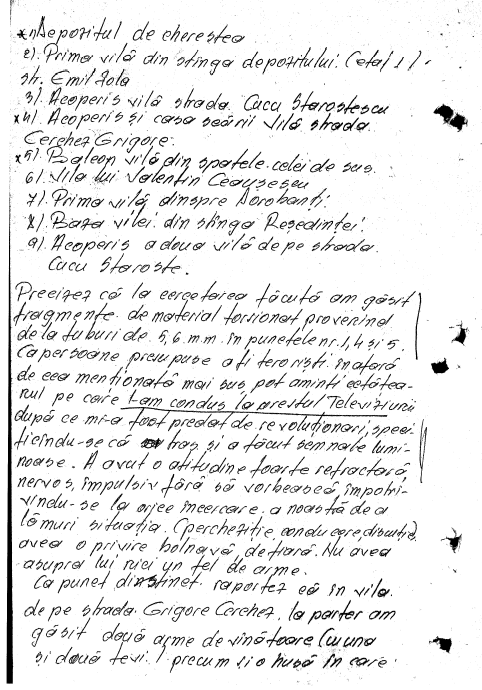 x 1) Depozitul de cherestea
2). Prima vilă din stînga depozitului. (etaj 1).
str. Emil Zola
3). Acoperiș vilă strada Cucu Starostescu
x 4). Acoperiș și casa scării vilă strada
Cerchez Grigore.
x 5). Balcon vilă din spatele celei de sus
6). Vila lui Valentin Ceaușescu
7). Prima vilă dinspre Dorobanți.
8). Baza vilei din stînga Reședinței.
9). Acoperiș a doua vilă de pe strada
Cucu Staroste.
Precizez că la cercetarea făcută am găsit
fragmente de material torsionat provenind
de la tuburi de 5,6 m.m. în punctele nr. 1, 4 și 5.
Ca persoane presupuse a fi teroriști în afară
de cea menționată mai sus pot aminti cetățea-
nul pe care l-am condus la arestul Televiziunii
după ce mi-a fost predat de revoluționari, speci-
ficîndu-se că tras și a făcut semnale lumi-
noase. A avut o atitudine foarte refractară
nervos, impulsiv fără să vorbească, împotri-
vindu-se la orice încercare a noastă de a
lămuri situația. (percheziție, conducere, discuție),
avea o privire bolnavă, de fiară. Nu avea
asupra lui nici un fel de arme.
Ca punct distinct raportez că în vila
de pe strada Grigore Cerchez, la parter am
găsit două arme de vînătoare (cu una
și două țevi) precum și o husă în care